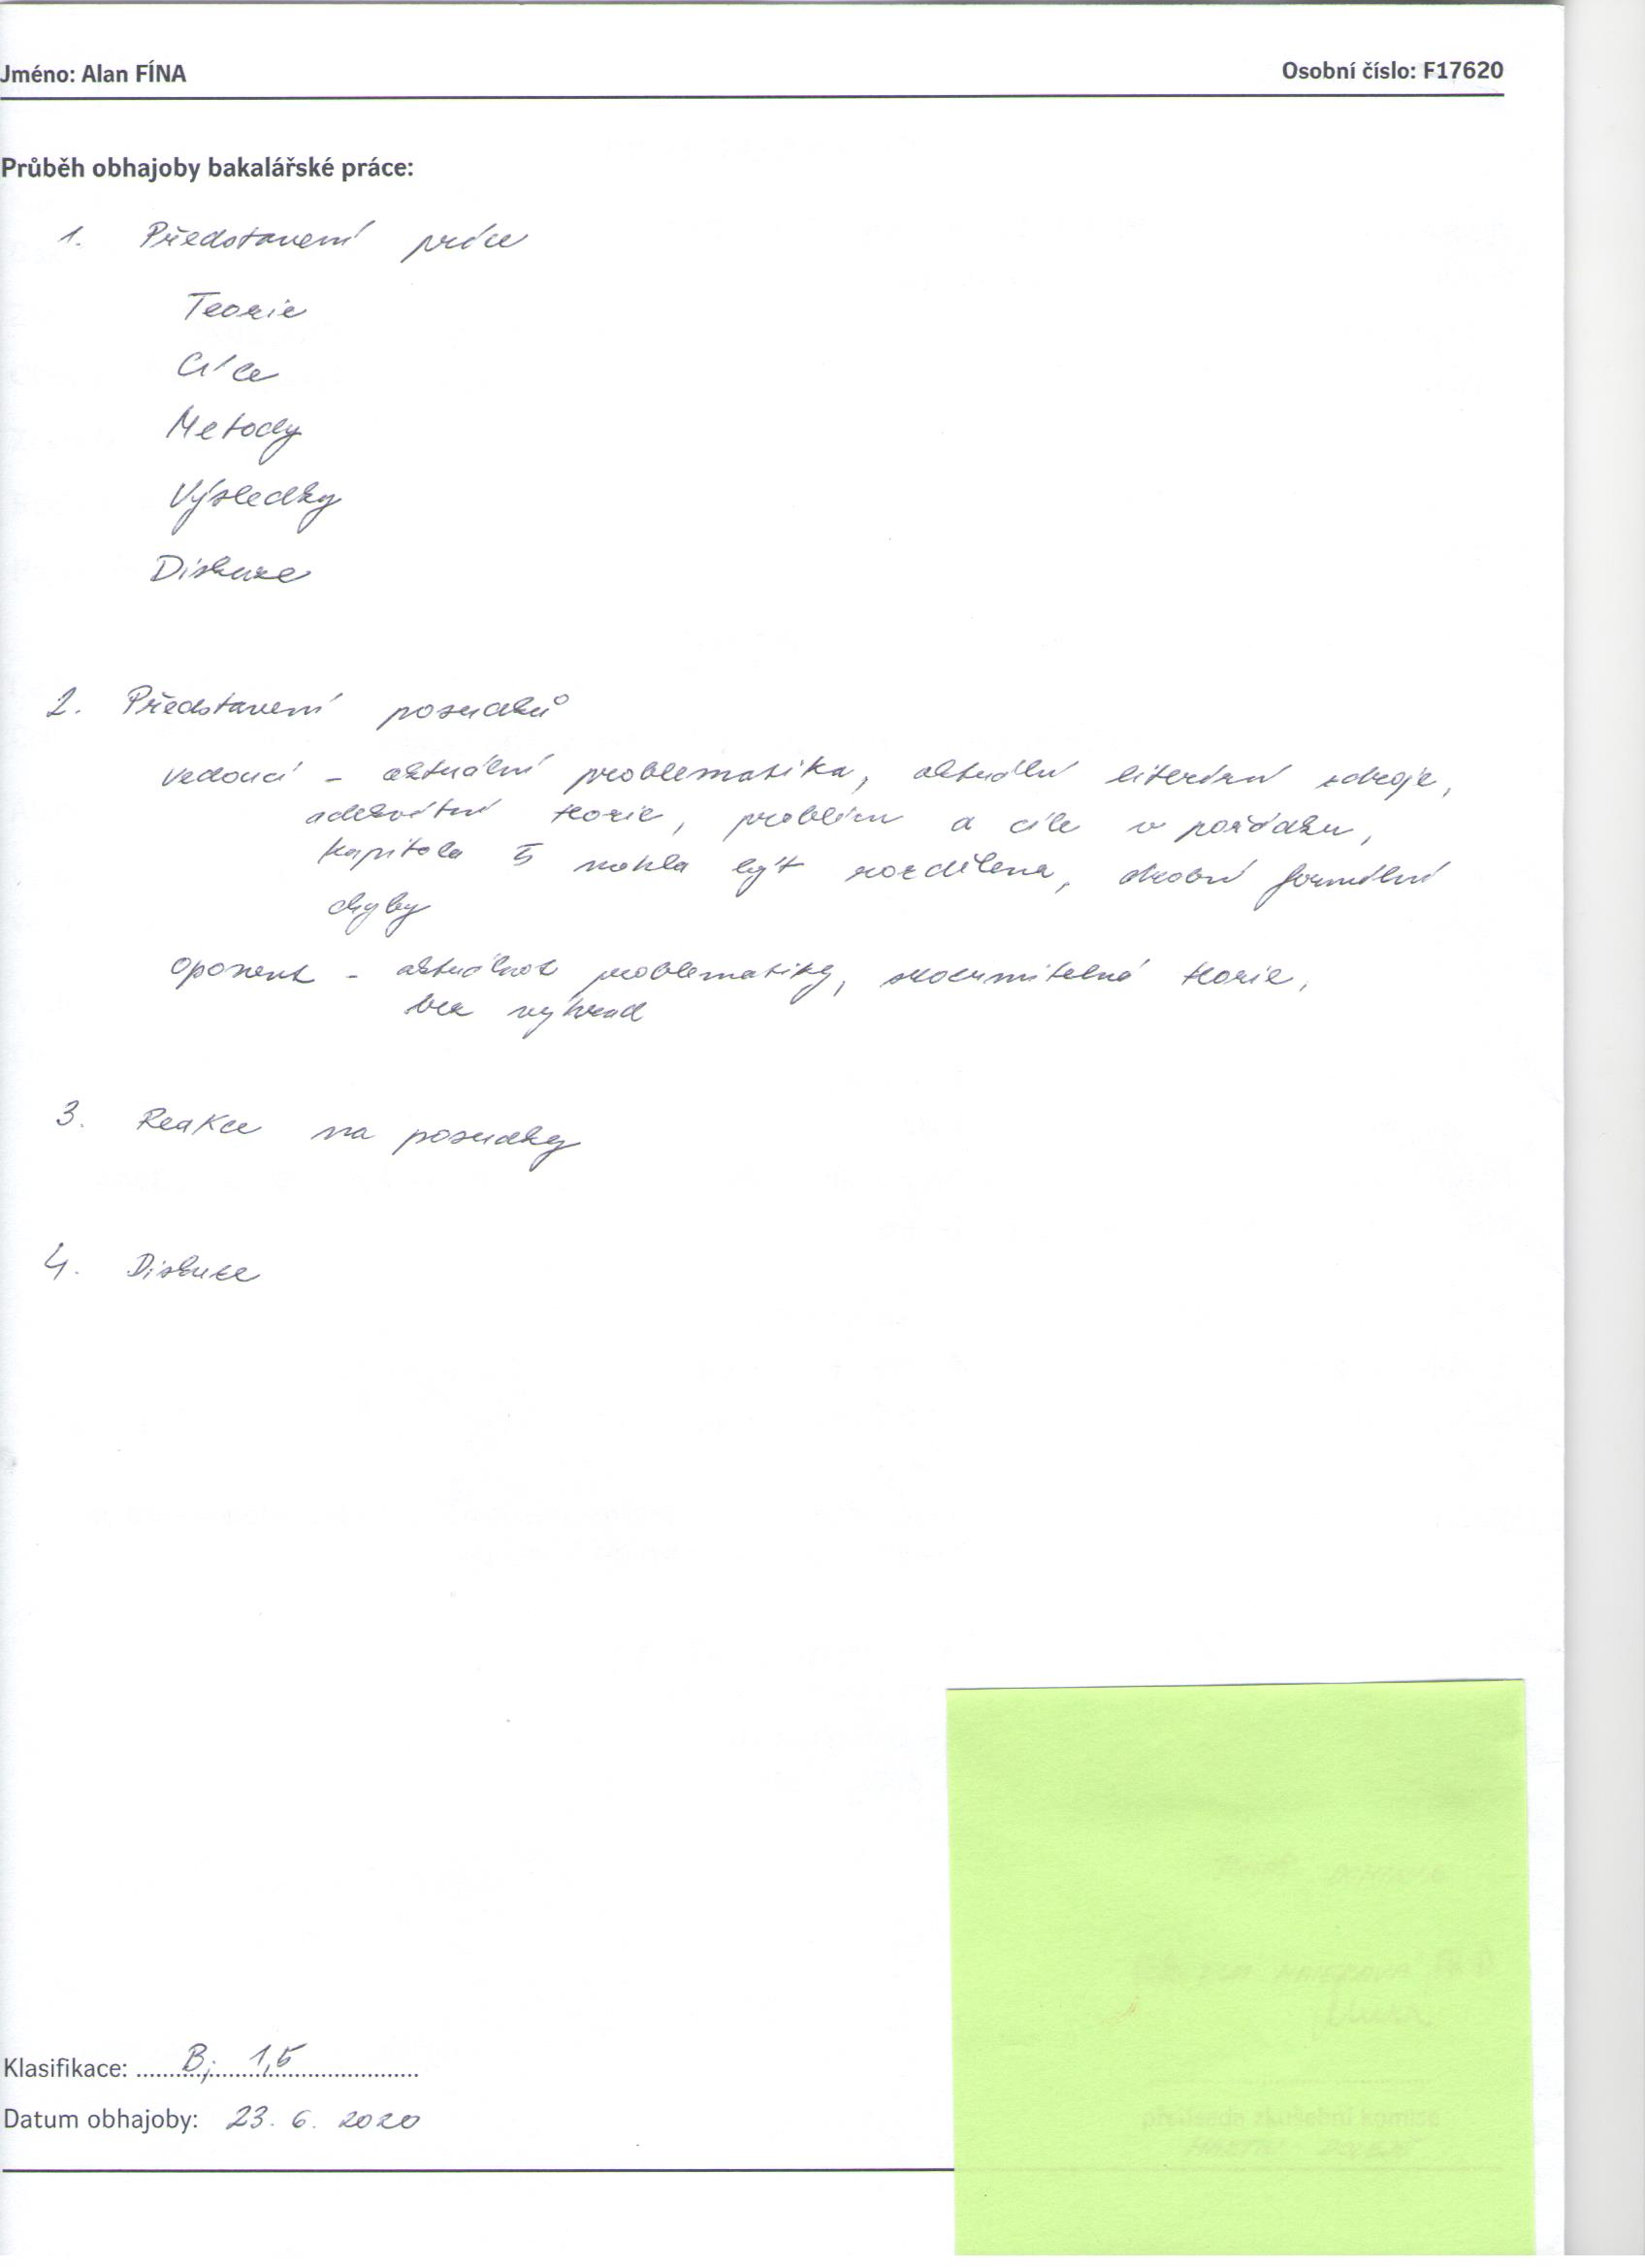 Jméno: Alan FÍNA
Osobní číslo: F17620
Průběh obhajoby bakalářské práce:
1. Představení práce
Teorie
Cíle
Metody
Výsledky
Diskuze
2. Představení posudků
vedoucí - aktuální problematika, aktuální literární zdroje,
adekvátní teorie, problém a cíle v pořádku,
kapitola 5 mohla být rozdělena, drobné formální
chyby
oponent - aktuálnost problematiky, srozumitelná teorie,
bez výhrad
3. Reakce na posudky
4. Diskuze
Klasifikace: B; 1,5
Datum obhajoby: 23. 6. 2020
předseda zkušební komise